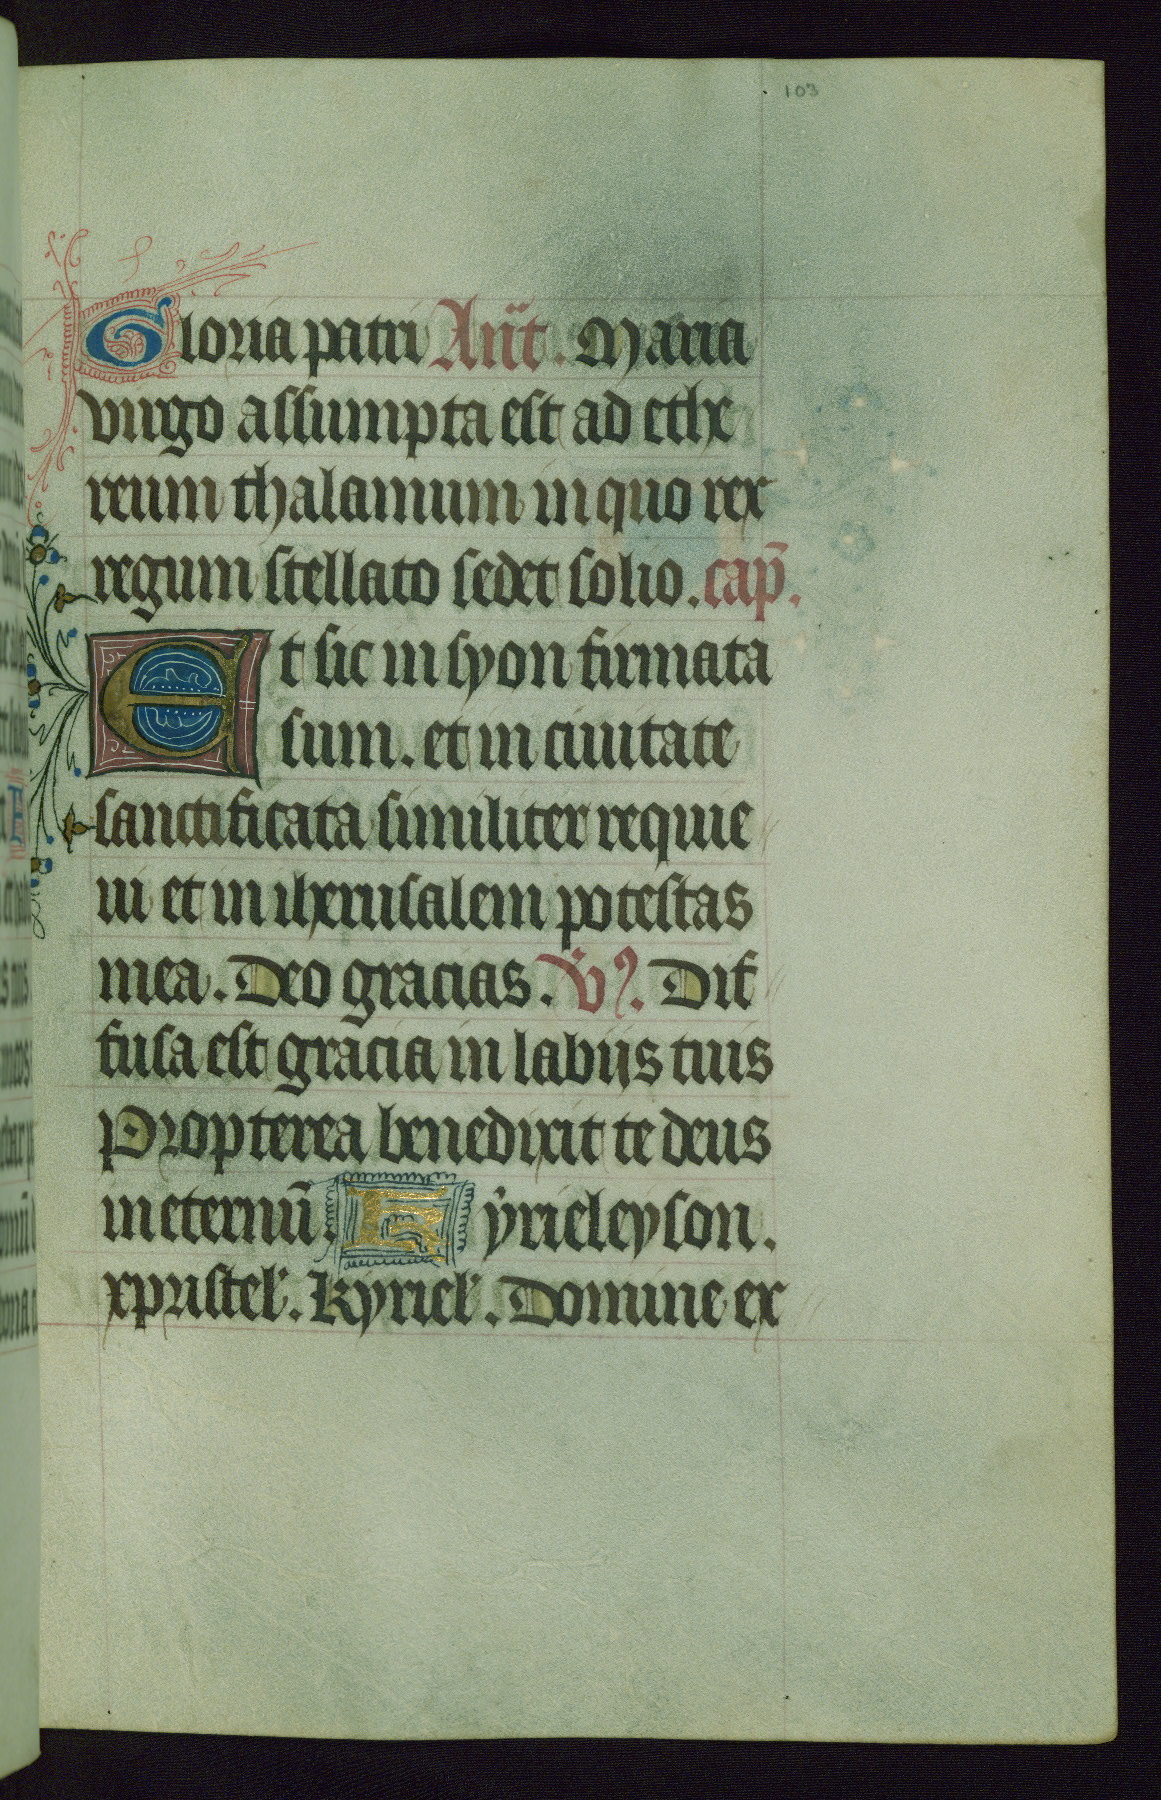 103
Gloria patri Añt. Maria
virgo assumpta est ad ethe
reum thalamum in quo rex
regum stellato sedet solio. cap̄.
Et sic in syon firmata
sum. et in ciuitate
sanctificata similiter requie
ui et in iherusalem potestas
mea. Deo gracias. V̉. Dif
fusa est gracia in labijs tuis
Propterea benedixit te deus
in eternū. Kyrieleyson.
xpristel'. Kyriel'. Domine ex